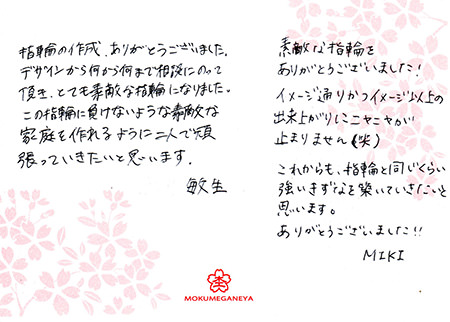 指輪の作成、ありがとうございました。
デザインから何から何まで相談にのって
頂き、とても素敵な指輪になりました。
この指輪に負けないような素敵な
家庭を作れるように二人で頑
張っていきたいと思います。
敏生
素敵な指輪を
ありがとうございました!
イメージ通りかつイメージ以上の
出来上がりにニヤニヤが
止まりません(笑)
これからも、指輪と同じくらい
強いきずなを築いていきたいと
思います。
ありがとうございました!!
MIKI
MOKUMEGANEYA